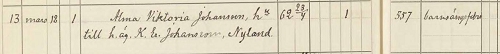 13 mars 18 1 Alma Viktoria Johansson, hu 62 23/4 1 557 barnsängsfeber
till h.äg. K. E. Johansson, Nyland